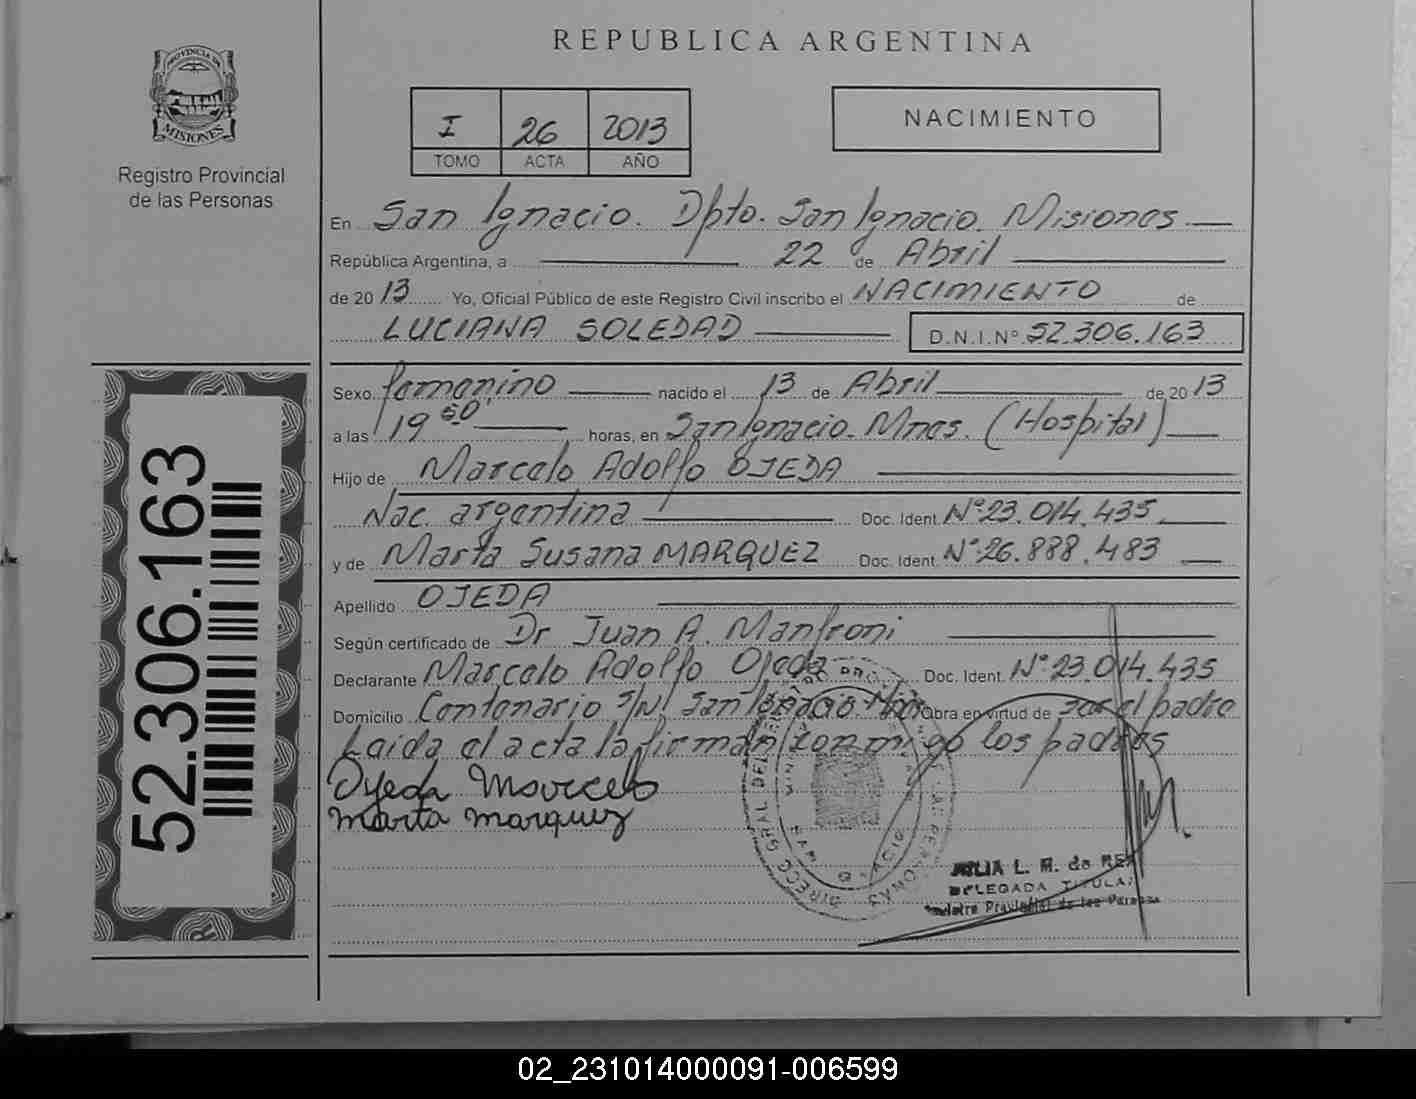 REPUBLICA ARGENTINA
PROVINCIA DE
MISIONES
Registro Provincial
de las Personas
I 26 2013
TOMO ACTA AÑO
NACIMIENTO
En San Ignacio. Dpto. San Ignacio. Misiones
República Argentina, a 22 de Abril
de 2013 Yo, Oficial Público de este Registro Civil inscribo el NACIMIENTO de
LUCIANA SOLEDAD D.N.I.Nº 52.306.163
Sexo femenino nacido el 13 de Abril de 2013
a las 19 50' horas, en San Ignacio. Mnes. (Hospital)
Hijo de Marcelo Adolfo OJEDA
Nac. argentina Doc. Ident. Nº 23.014.435
y de Marta Susana MARQUEZ Doc. Ident. Nº 26.888.483
Apellido OJEDA
Según certificado de Dr Juan A. Manfroni
Declarante Marcelo Adolfo Ojeda Doc. Ident. Nº 23.014.435
Domicilio Centenario S/Nº San Ignacio. Obra en virtud de ser el padre
Leida el acta la firman conmigo los padres
Ojeda Marcelo
marta marquez
52.306.163
L. M. de
DELEGADA TITULAR
Provincial de las
02_231014000091-006599